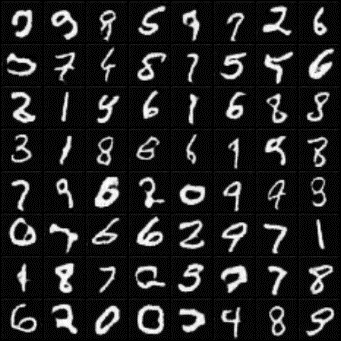 9 8 5 9 7 2 6
7 4 8 7 5 5 6
2 1 9 6 1 6 8 8
3 1 8 6 6 1 9 8
7 9 6 2 0 9 9 8
0 6 6 2 9 7 1
1 8 7 2 5 2 7 8
6 2 0 0 4 8 9